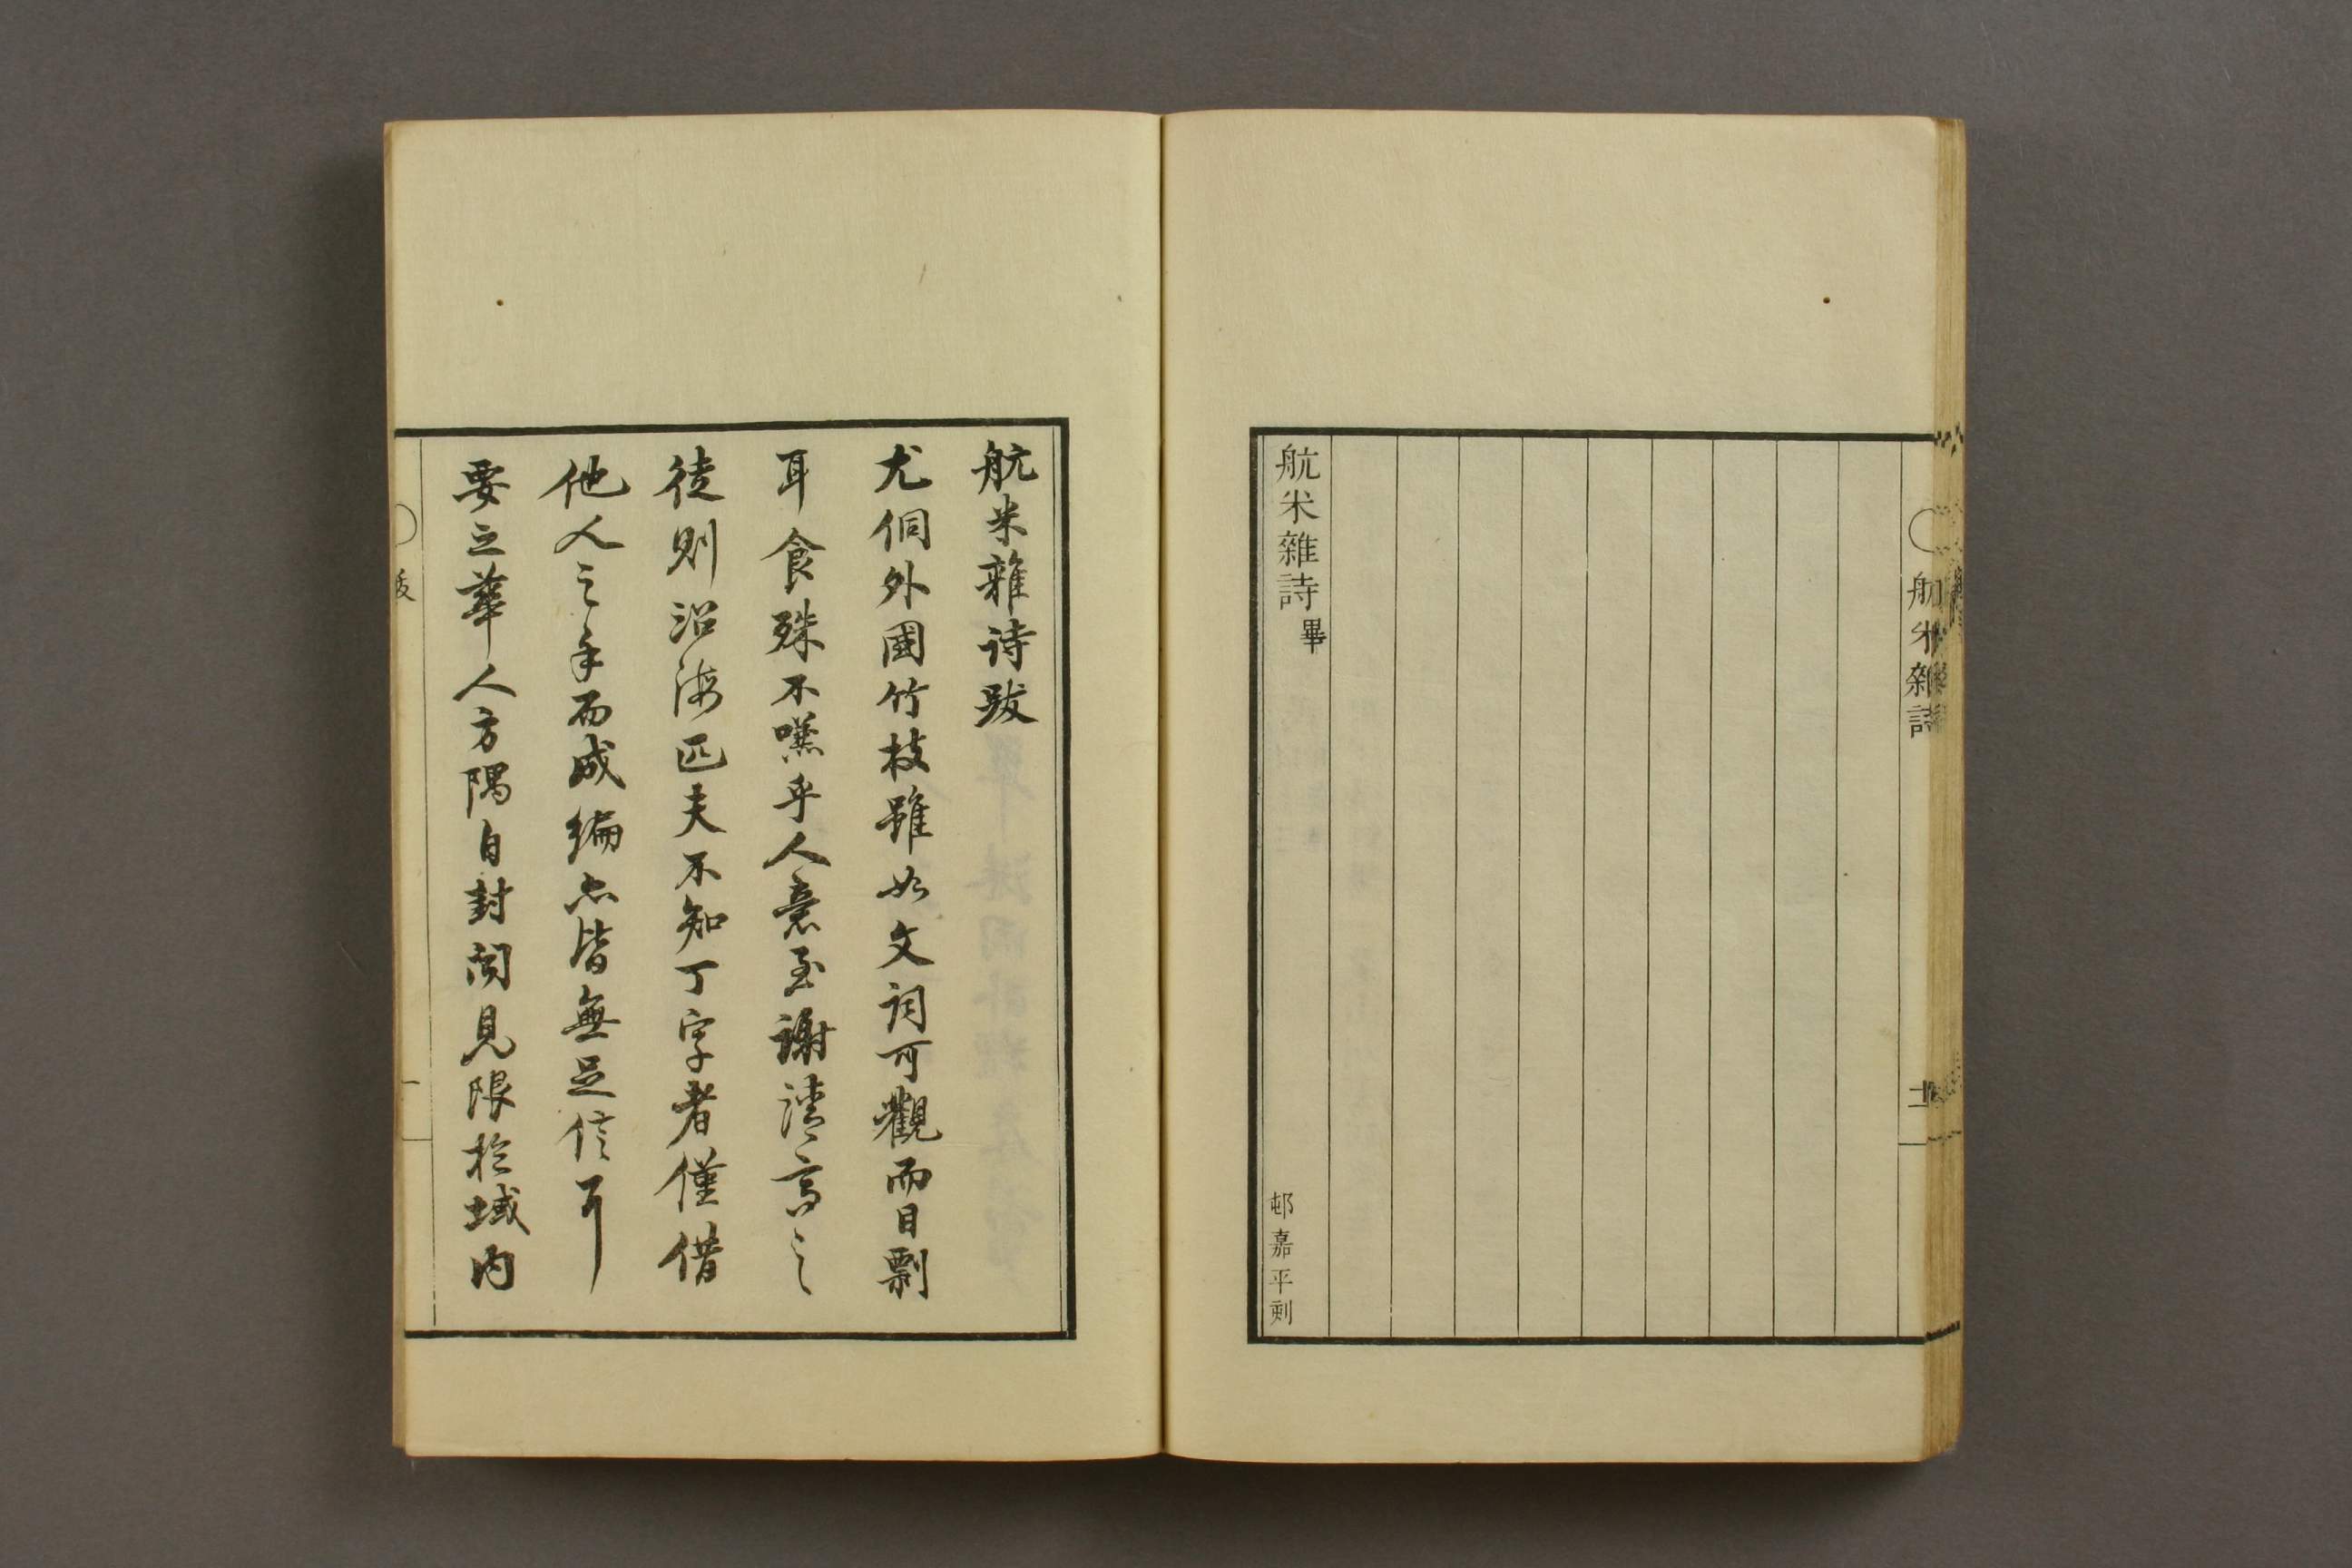 航米雜詩
十一
航米雜詩畢
邨嘉平刻
航米雜詩跋
尤侗外國竹枝雖如文詞可觀而目剽
耳食殊不嘫乎人意至謝清高之
徒則沿海匹夫不知丁字者僅借
他人之手而成編亦皆無足信耳
要之華人方隅自封聞見限於域内
跋
一